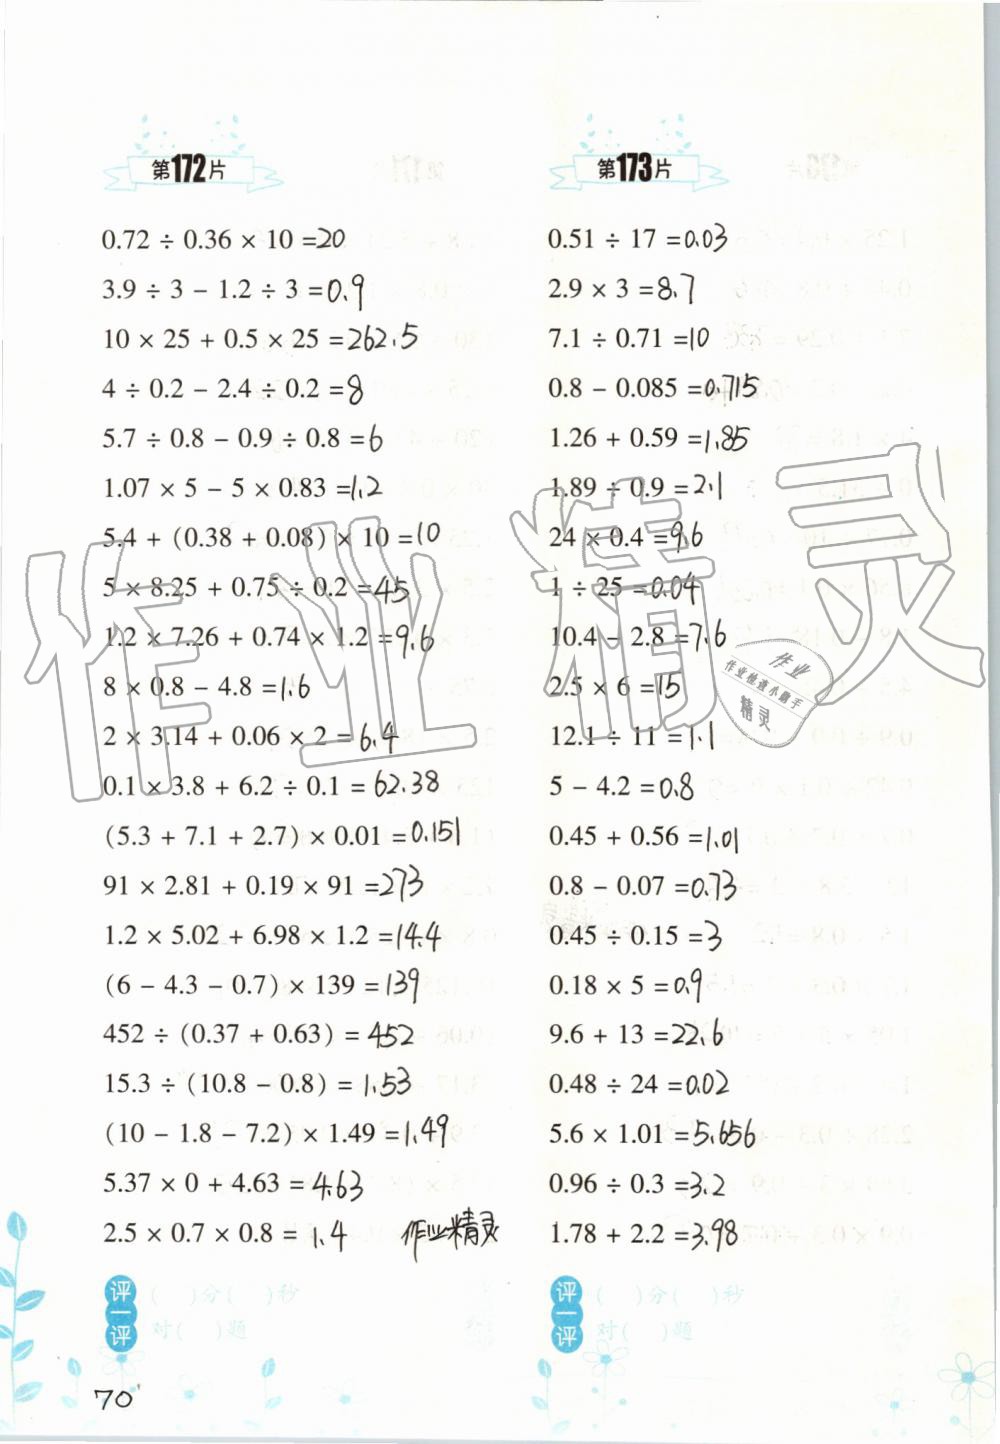 第172片
0.72 ÷ 0.36 × 10 =20
3.9 ÷ 3 − 1.2 ÷ 3 =0.9
10 × 25 + 0.5 × 25 =262.5
4 ÷ 0.2 − 2.4 ÷ 0.2 =8
5.7 ÷ 0.8 − 0.9 ÷ 0.8 =6
1.07 × 5 − 5 × 0.83 =1.2
5.4 + (0.38 + 0.08) × 10 =10
5 × 8.25 + 0.75 ÷ 0.2 =45
1.2 × 7.26 + 0.74 × 1.2 =9.6
8 × 0.8 − 4.8 =1.6
2 × 3.14 + 0.06 × 2 = 6.4
0.1 × 3.8 + 6.2 ÷ 0.1 = 62.38
(5.3 + 7.1 + 2.7) × 0.01 =0.151
91 × 2.81 + 0.19 × 91 =273
1.2 × 5.02 + 6.98 × 1.2 =14.4
(6 − 4.3 − 0.7) × 139 =139
452 ÷ (0.37 + 0.63) = 452
15.3 ÷ (10.8 − 0.8) = 1.53
(10 − 1.8 − 7.2) × 1.49 =1.49
5.37 × 0 + 4.63 = 4.63
2.5 × 0.7 × 0.8 = 1.4 作业精灵
评一评
( )分( )秒
对( )题
第173片
0.51 ÷ 17 =0.03
2.9 × 3 =8.7
7.1 ÷ 0.71 =10
0.8 − 0.085 =0.715
1.26 + 0.59 =1.85
1.89 ÷ 0.9 =2.1
24 × 0.4 =9.6
1 ÷ 25 =0.04
10.4 − 2.8 =7.6
2.5 × 6 =15
12.1 ÷ 11 =1.1
5 − 4.2 =0.8
0.45 + 0.56 =1.01
0.8 − 0.07 =0.73
0.45 ÷ 0.15 =3
0.18 × 5 =0.9
9.6 + 13 =22.6
0.48 ÷ 24 =0.02
5.6 × 1.01 =5.656
0.96 ÷ 0.3 =3.2
1.78 + 2.2 =3.98
评一评
( )分( )秒
对( )题
作业精灵
作业
作业检查小助手
精灵
70